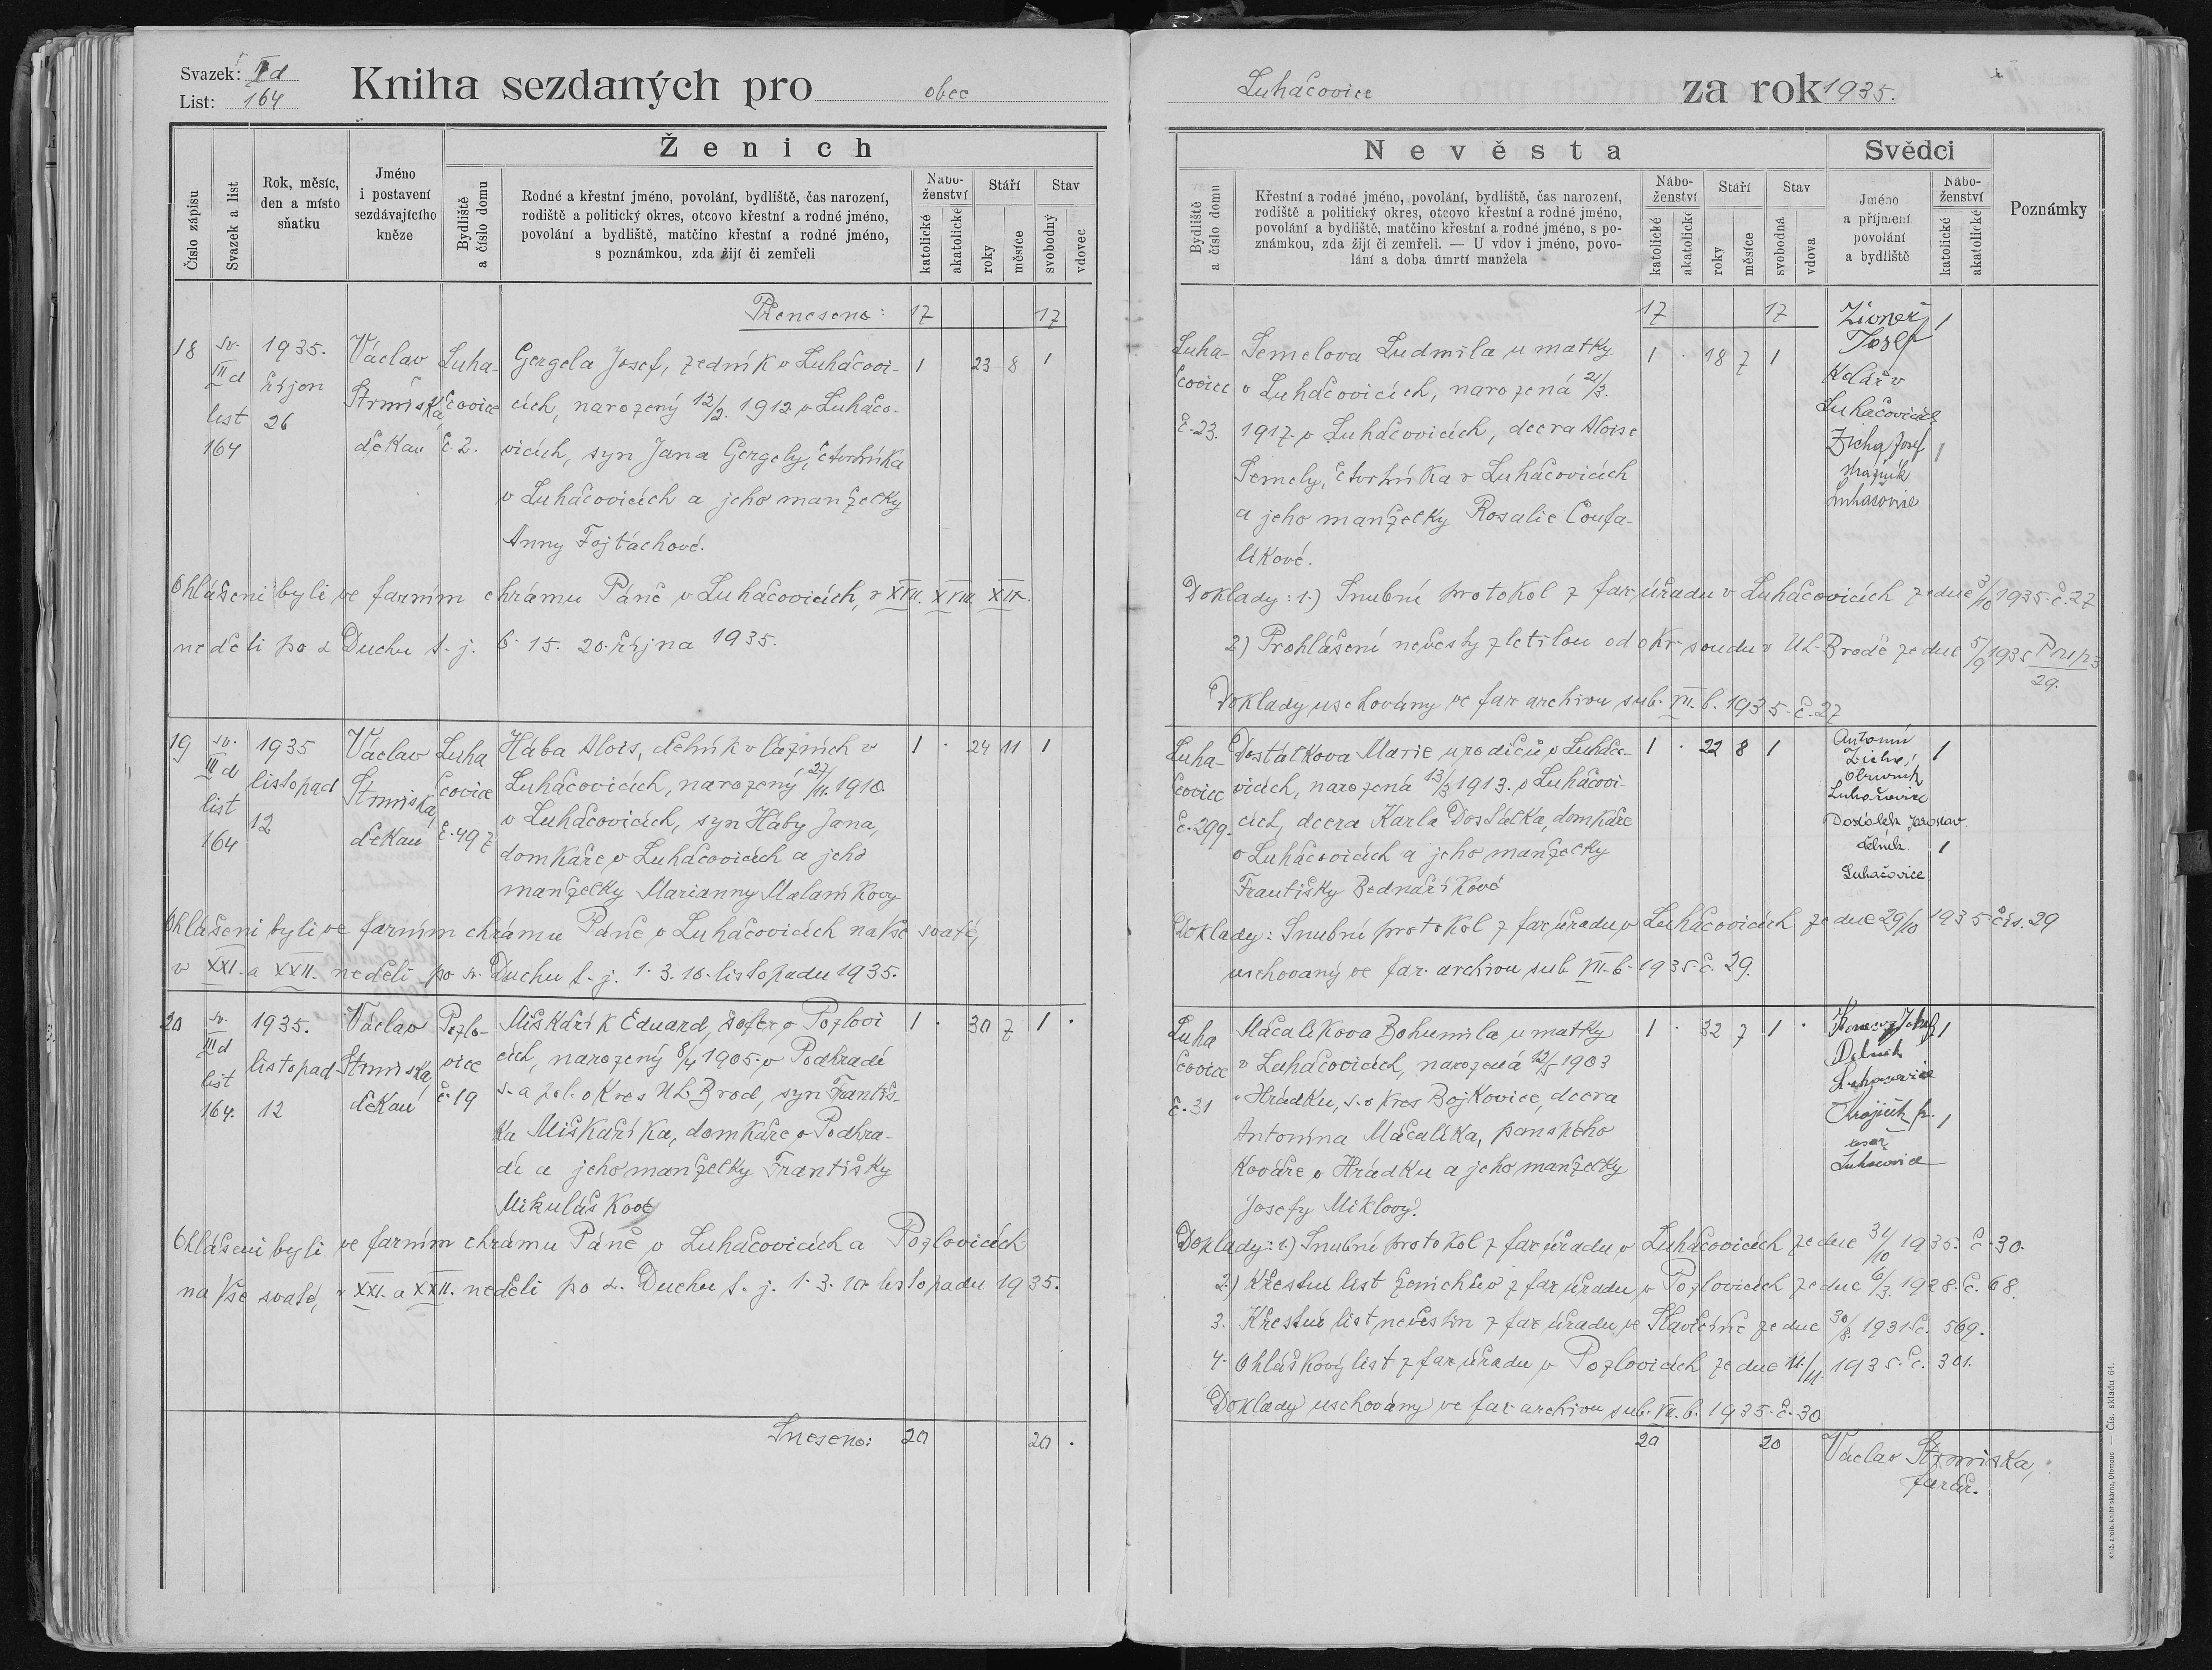 Svazek: IIId
List: 164
Kniha sezdaných pro obec
Luhačovice za rok 1935.
Číslo zápisu
Svazek a list
Rok, měsíc, den a místo sňatku
Jméno i postavení sezdávajícího kněze
Ženich
Bydliště a číslo domu
Rodné a křestní jméno, povolání, bydliště, čas narození,
rodiště a politický okres, otcovo křestní a rodné jméno,
povolání a bydliště, matčino křestní a rodné jméno,
s poznámkou, zda žijí či zemřeli
Nábo-
ženství
katolické
akatolické
Stáří
roky
měsíce
Stav
svobodný
vdovec
Nevěsta
Bydliště a číslo domu
Křestní a rodné jméno, povolání, bydliště, čas narození,
rodiště a politický okres, otcovo křestní a rodné jméno,
povolání a bydliště, matčino křestní a rodné jméno, s po-
známkou, zda žijí či zemřeli. — U vdov i jméno, povo-
lání a doba úmrtí manžela
Nábo-
ženství
katolické
akatolické
Stáří
roky
měsíce
Stav
svobodná
vdova
Svědci
Jméno
a příjmení
povolání
a bydliště
Nábo-
ženství
katolické
akatolické
Poznámky
Přeneseno: 17 17
17 17
18
sv.
IIId
list
164
1935.
říjen
26
Václav
Strmiska,
děkan
Luha-
čovice
č. 2.
Gergela Josef, zedník v Luhačovi-
cích, narozený 12/2. 1912 v Luhačo-
vicích, syn Jana Gergely, čtvrtníka
v Luhačovicích a jeho manželky
Anny Fojtáchové.
1 23 8 1
Ohlášeni byli ve farním chrámu Páně v Luhačovicích, v XVII. XVIII. XIX.
neděli po s. Duchu t. j. 6. 15. 20. října 1935.
Luha-
čovice
č. 23.
Semelova Ludmila u matky
v Luhačovicích, narozená 21/3.
1917 v Luhačovicích, dcera Aloise
Semely, čtvrtníka v Luhačovicích
a jeho manželky Rosalie Coufa-
líkové.
1 . 18 7 1
Josef
Kolářv
Luhačovicích
1
Zicha Josef
strážník
Luhačovice
1
Doklady: 1.) Snubní protokol z far. úřadu v Luhačovicích ze dne 3/10 1935 č. 27
2) Prohlášení nevěsty zletilou od okr. soudu v Uh. Brodě ze dne 5/9 1935
29.
Doklady uschovány ve far. archivu sub. VII. b. 1935. č. 27
19
sv.
IIId
list
164
1935
listopad
12
Václav
Strmiska,
děkan
Luha
čovice
č. 497
Hába Alois, dělník v lázních v
Luhačovicích, narozený 27/11. 1910.
v Luhačovicích, syn Háby Jana,
domkáře v Luhačovicích a jeho
manželky Marianny Malaníkovy
1 . 24 11 1
Ohlášeni byli ve farním chrámu Páně v Luhačovicích na Vše svaté,
v XXI. a XXII. neděli po s. Duchu t. j. 1. 3. 10. listopadu 1935.
Luha-
čovice
č. 299.
Dostálkova Marie u rodičů v Luhačo-
vicích, narozená 13/3 1913. v Luhačovi-
cích, dcera Karla Dostálka, domkáře
v Luhačovicích a jeho manželky
Františky Bednaříkové
1 . 22 8 1
Antonín
obuvník
Luhačovice
1
Dostálek Jaroslav.
dělník.
Luhačovice
1
Doklady: Snubní protokol z far. úřadu v Luhačovicích ze dne 29/10 1935 čís. 29
uschovaný ve far. archivu sub. VII. b. 1935 č. 29.
20
sv.
IIId
list
164.
1935.
listopad
12
Václav
Strmiska,
děkan
Pozlo-
vice
č. 19
Miškařík Eduard, šofer v Pozlovi
cích, narozený 8/4 1905. v Podhradí
s. a pol. okres Uh. Brod, syn Františ-
ka Miškaříka, domkáře v Podhra-
dí a jeho manželky Františky
Mikuláškové
1 . 30 7 1 .
Ohlášeni byli ve farním chrámu Páně v Luhačovicích a Pozlovicích
na Vše svaté, v XXI. a XXII. neděli po s. Duchu t. j. 1. 3. 10. listopadu 1935.
Luha
čovice
č. 31
Máčalíkova Bohumila u matky
v Luhačovicích, narozená 12/5 1903
v Hrádku, s. okres Bojkovice, dcera
Antonína Máčalíka, panského
kováře v Hrádku a jeho manželky
Josefy Miklovy.
1 . 32 7 1 .
Dělník
Luhačovice
1
tesař
Luhačovice
1
Doklady: 1.) Snubní protokol z far. úřadu v Luhačovicích ze dne 31/10 1935. č. 30.
2.) Křestní list ženichův z far. úřadu v Pozlovicích ze dne 6/3. 1928. č. 68.
3. Křestní list nevěstin z far. úřadu ve Slavičíně ze dne 30/8. 1931 č. 569.
4. Ohláškový list z far. úřadu v Pozlovicích ze dne 11./11. 1935. č. 301.
Doklady uschovány ve far. archivu sub. VII. b. 1935. č. 30
Sneseno: 20 20 .
20 20
Václav Strmiska,
farář.
Kniž. arcib. knihtiskárna, Olomouc — Čís. skladu 64.